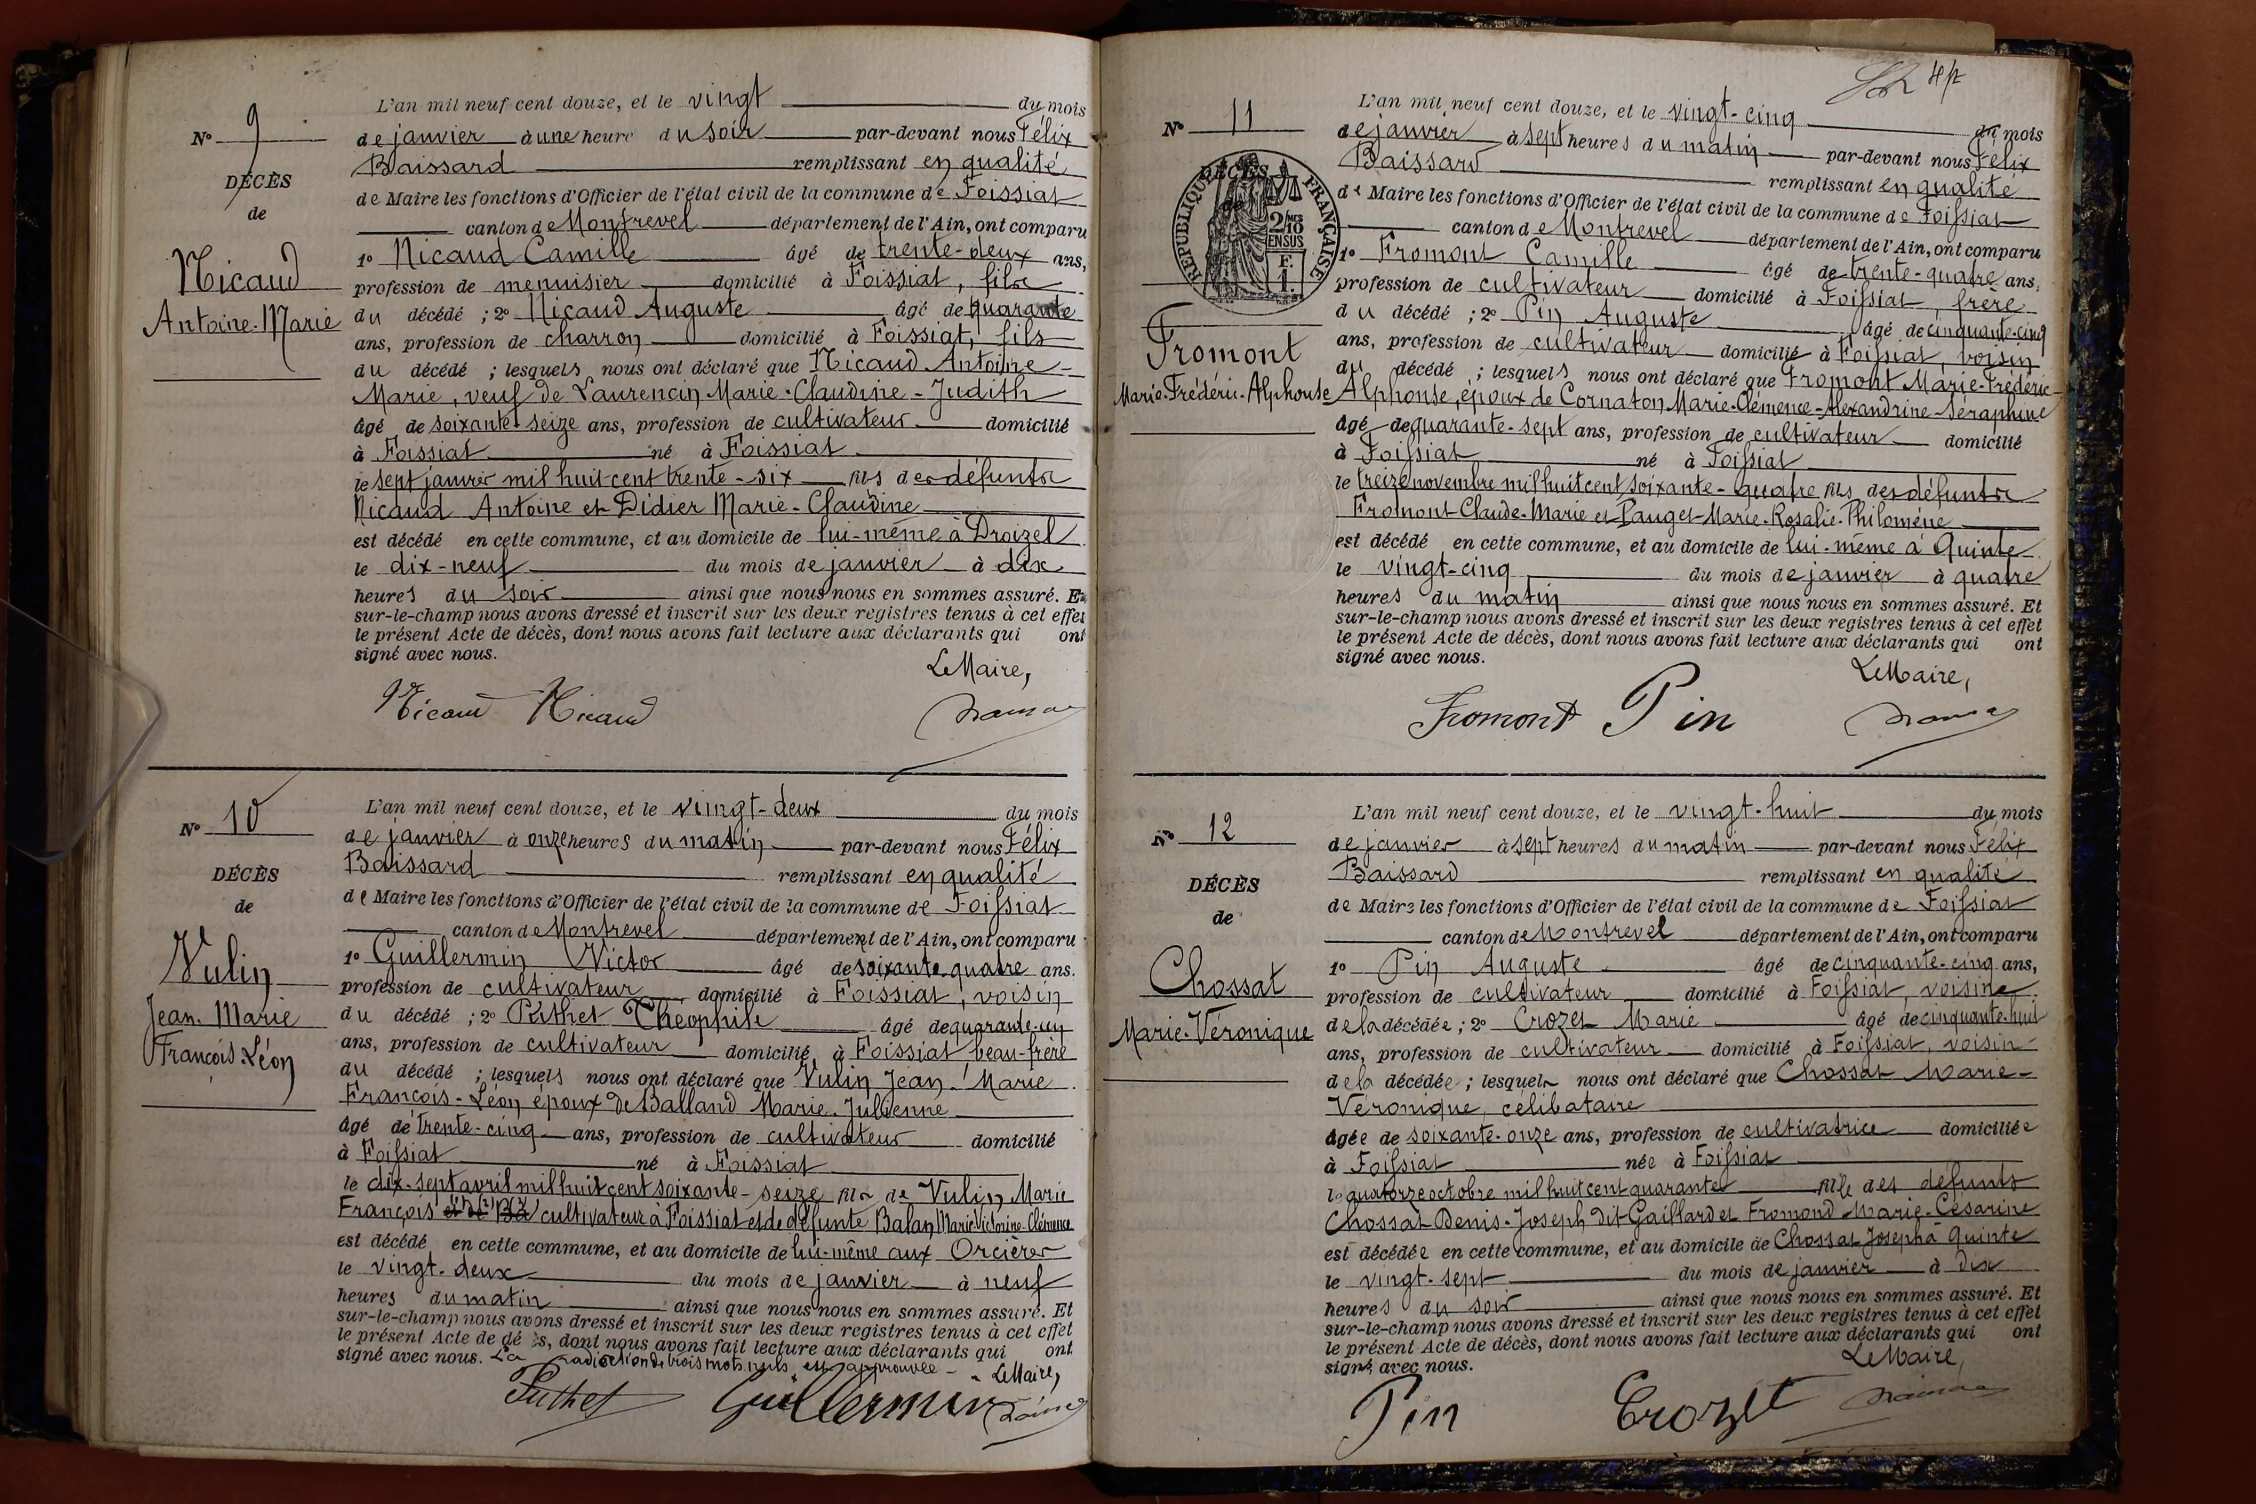 N° 9
DÉCÈS
de
Nicaud
Antoine-Marie
L'an mil neuf cent douze, et le vingt du mois
de janvier à une heure du soir par-devant nous Félix
Baissard remplissant en qualité
de Maire les fonctions d'Officier de l'état civil de la commune de Foissiat
canton de Montrevel département de l'Ain, ont comparu
1° Nicaud Camille âgé de trente-deux ans,
profession de menuisier domicilié à Foissiat, fils
du décédé ; 2° Nicaud Auguste âgé de quarante
ans, profession de charron domicilié à Foissiat, fils
du décédé ; lesquels nous ont déclaré que Nicaud Antoine-
Marie, veuf de Laurencin Marie-Claudine-Judith
âgé de soixante-seize ans, profession de cultivateur domicilié
à Foissiat né à Foissiat
le sept janvier mil huit cent trente-six fils des défunts
Nicaud Antoine et Didier Marie-Claudine
est décédé en cette commune, et au domicile de lui-même à Droizel
le dix-neuf du mois de janvier à dix
heures du soir ainsi que nous nous en sommes assuré. Et
sur-le-champ nous avons dressé et inscrit sur les deux registres tenus à cet effet
le présent Acte de décès, dont nous avons fait lecture aux déclarants qui ont
signé avec nous.
Le Maire,
Nicaud Nicaud
N° 10
DÉCÈS
de
Vulin
Jean-Marie
François-Léon
L'an mil neuf cent douze, et le vingt-deux du mois
de janvier à onze heures du matin par-devant nous Félix
Baissard remplissant en qualité
de Maire les fonctions d'Officier de l'état civil de la commune de Foissiat
canton de Montrevel département de l'Ain, ont comparu
1° Guillermin Victor âgé de soixante-quatre ans.
profession de cultivateur domicilié à Foissiat, voisin
du décédé ; 2° Puthet Théophile âgé de quarante-un
ans, profession de cultivateur domicilié à Foissiat beau-frère
du décédé ; lesquels nous ont déclaré que Vulin Jean-Marie
François-Léon époux de Balland Marie-Julienne
âgé de trente-cinq ans, profession de cultivateur domicilié
à Foissiat né à Foissiat
le dix-sept avril mil huit cent soixante-seize fils de Vulin Marie
François cultivateur à Foissiat et de défunte Balan Marie Victorine-Clémence
est décédé en cette commune, et au domicile de lui-même aux Orcières
le vingt-deux du mois de janvier à neuf
heures du matin ainsi que nous nous en sommes assuré. Et
sur-le-champ nous avons dressé et inscrit sur les deux registres tenus à cet effet
le présent Acte de décès, dont nous avons fait lecture aux déclarants qui ont
signé avec nous. La radiation de trois mots nuls est approuvée - Le Maire,
Puthet Guillermin
N° 11
DÉCÈS
de
RÉPUBLIQUE FRANÇAISE
2/10
EN SUS
F.
1.
Fromont
Marie-Frédéric-Alphonse
L'an mil neuf cent douze, et le vingt-cinq du mois
de janvier à sept heures du matin par-devant nous Félix
Baissard remplissant en qualité
de Maire les fonctions d'Officier de l'état civil de la commune de Foissiat
canton de Montrevel département de l'Ain, ont comparu
1° Fromont Camille âgé de trente-quatre ans,
profession de cultivateur domicilié à Foissiat, frère
du décédé ; 2° Pin Auguste âgé de cinquante-cinq
ans, profession de cultivateur domicilié à Foissiat, voisin
du décédé ; lesquels nous ont déclaré que Fromont Marie-Frédéric-
Alphonse, époux de Cornaton Marie-Clémence-Alexandrine-Séraphine
âgé de quarante-sept ans, profession de cultivateur domicilié
à Foissiat né à Foissiat
le treize novembre mil huit cent soixante-quatre fils des défunts
Fromont Claude-Marie et Pauget Marie-Rosalie-Philomène
est décédé en cette commune, et au domicile de lui-même à Quinte
le vingt-cinq du mois de janvier à quatre
heures du matin ainsi que nous nous en sommes assuré. Et
sur-le-champ nous avons dressé et inscrit sur les deux registres tenus à cet effet
le présent Acte de décès, dont nous avons fait lecture aux déclarants qui ont
signé avec nous.
Le Maire,
Fromont Pin
N° 12
DÉCÈS
de
Chossat
Marie-Véronique
L'an mil neuf cent douze, et le vingt-huit du mois
de janvier à sept heures du matin par-devant nous Félix
Baissard remplissant en qualité
de Maire les fonctions d'Officier de l'état civil de la commune de Foissiat
canton de Montrevel département de l'Ain, ont comparu
1° Pin Auguste âgé de cinquante-cinq ans,
profession de cultivateur domicilié à Foissiat, voisin
de la décédée ; 2° Crozet Marie âgé de cinquante-huit
ans, profession de cultivateur domicilié à Foissiat, voisin
de la décédée ; lesquels nous ont déclaré que Chossat Marie-
Véronique, célibataire
âgée de soixante-onze ans, profession de cultivatrice domiciliée
à Foissiat née à Foissiat
le quatorze octobre mil huit cent quarante fille des défunts
Chossat Denis-Joseph dit Gaillard et Fromond Marie-Césarine
est décédée en cette commune, et au domicile de Chossat Joseph à Quinte
le vingt-sept du mois de janvier à dix
heures du soir ainsi que nous nous en sommes assuré. Et
sur-le-champ nous avons dressé et inscrit sur les deux registres tenus à cet effet
le présent Acte de décès, dont nous avons fait lecture aux déclarants qui ont
signé avec nous.
Le Maire,
Pin Crozet